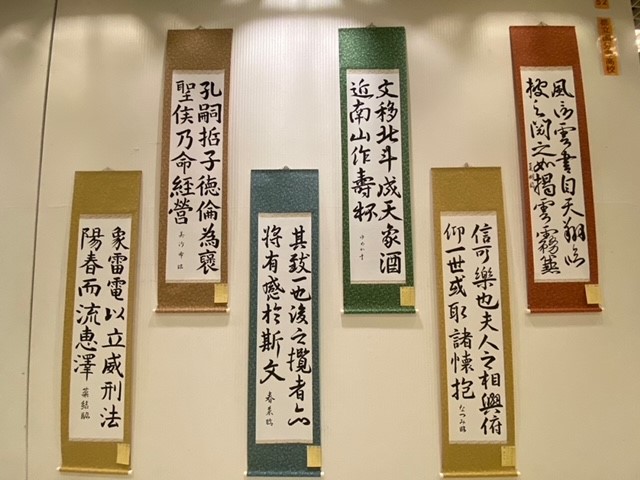 風信雲書自天翔臨
披之閲之如揭雲霧兼
信可樂也夫人之相與俯
仰一世或取諸懷抱
なつみ臨
文移北斗成天象酒
近南山作壽杯
其致一也後之攬者亦
將有感於斯文
春菜臨
孔嗣悊子德倫為襃
聖侯乃命經營
象雷電以立威刑法
陽春而流恵澤